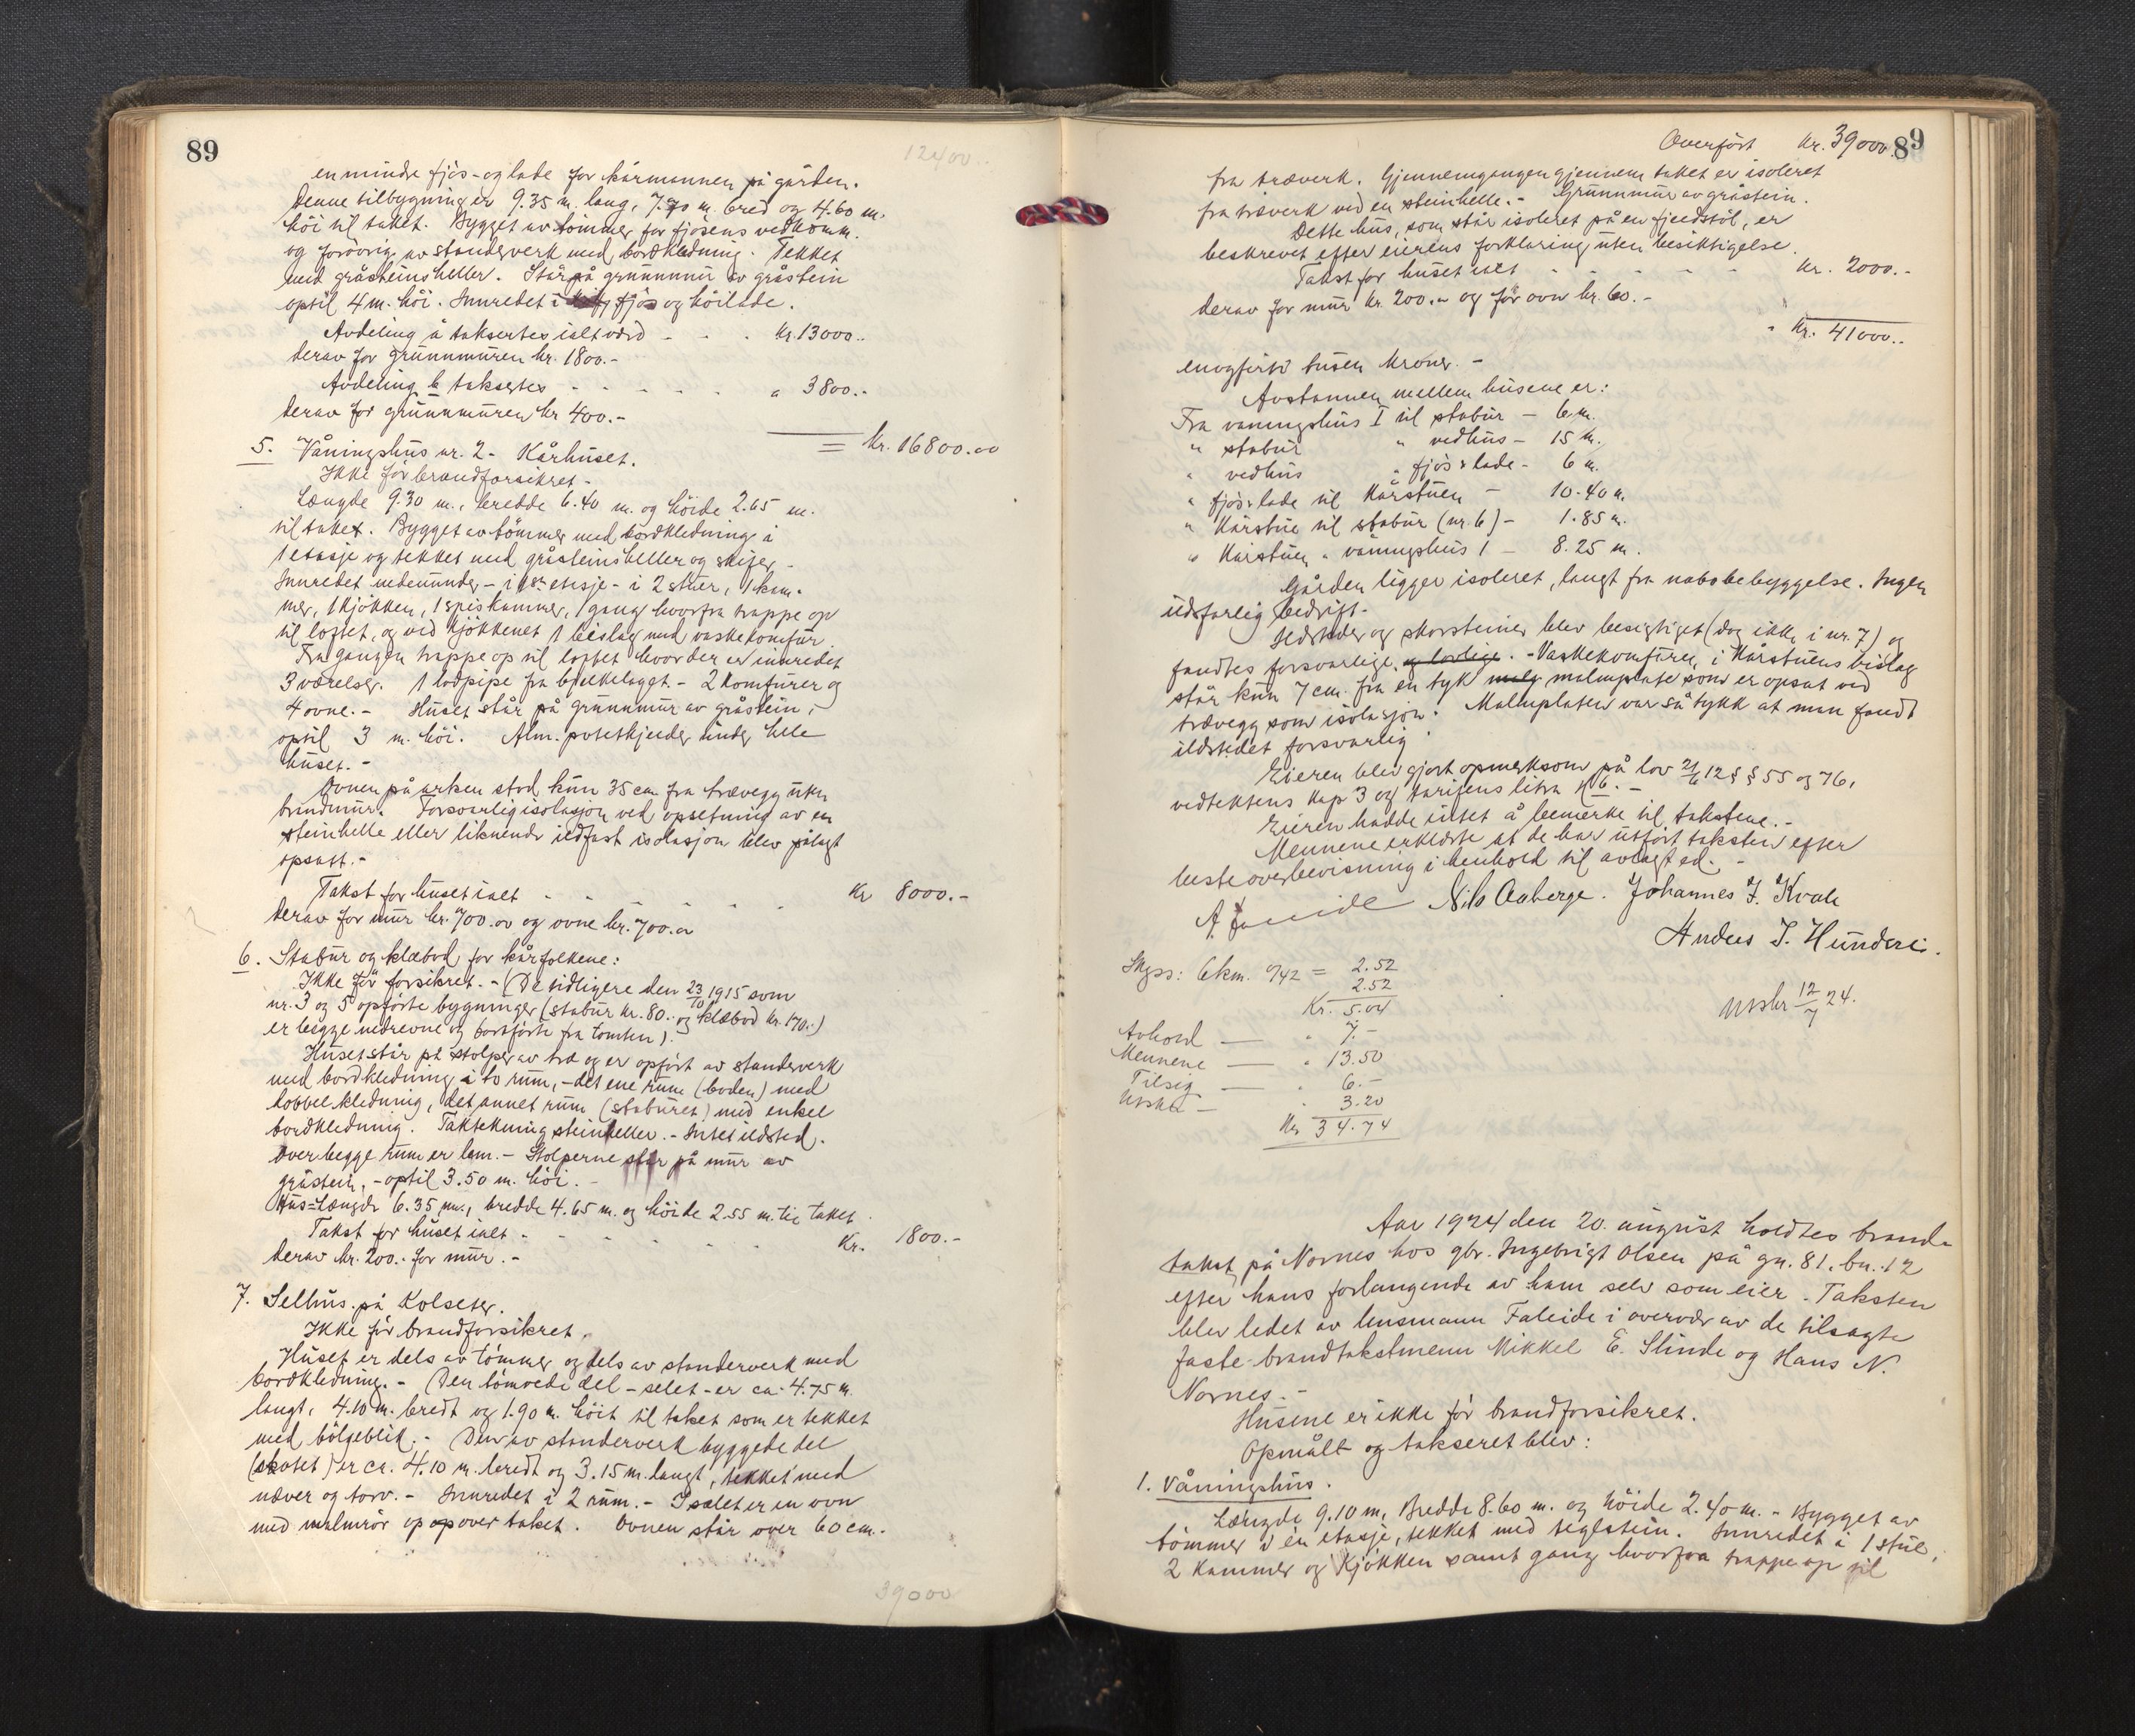 89
12400..
en mindre fjös- og lade for kårmannen på gården.
Denne tilbygning er 9.35 m. lang, 7.70 m. bred og 4.60 m.
höi til taket. Bygget av tömmer for fjösens vedkomm.
og forövrig av standerverk med bordkledning. Tekket
med gråsteinsheller. Står på grunnmur av gråstein
optil 4 m. höi. Innredet i fjös og höilade.
Avdeling a taksertes ialt verd - - . Kr. 13000..
derav for grunnmuren kr. 1800.-
Avdeling b taksertes - - - - . " 3800.-
derav for grunnmuren kr 400.-
= Kr. 16800.00
5. Våningshus nr. 2 - Kårhuset.
Ikke för brandforsikret -
Længde 9.30 m., bredde 6.40 m. og höide 2.65 m.
til taket. Bygget av tömmer med bordkledning i
1 etasje og tekket med gråsteinsheller og skifer. -
Innredet nedenunder - i 1ste etasje - i 2 stuer, 1 kam-
mer, 1 kjökken, 1 spiskammer, 1 gang hvorfra trappe op
til loftet, og ved kjökkenet 1 bislag med vaskekomfur
Fra gangen trappe op til loftet hvor der er innredet
3 værelser. 1 lodpipe fra bjelkelaget. - 2 komfurer og
4 ovne. - Huset står på grunnmur av gråstein,
optil 3 m. höi. Alm. potetkjeller under hele
huset. -
Ovnen på arken stod kun 35 cm fra trævegg uten
brandmur. Forsvarlig isolasjon ved opsetning av en
steinhelle eller liknende ildfast isolasjon blev pålagt
opsatt. -
Takst for huset ialt - - - - - - Kr 8000.-
derav for mur kr. 700.00 og ovne kr. 700.00
6. Stabur og klæbod for kårfolkene:
Ikke för forsikret. - (De tidligere den 23/10 1915 som
nr. 3 og 5 opförte bygninger (stabur kr. 80.. og klæbod kr. 170..)
er begge nedrevne og bortförte fra tomten).
Huset står på stolper av træ og er opfört av standerverk
med bordkledning i to rum, - det ene rum (boden) med
dobbel kledning, det annet rum (staburet) med enkel
bordkledning. Taktekning steinheller. - Intet ildsted.
Over begge rum er lem. - Stolperne står på mur av
gråstein, - optil 3.50 m. höi. -
Hus=Længde 6.35 m., bredde 4.65 m. og höide 2.55 m. til taket.
Takst for huset ialt - - - - - - Kr. 1800.-
derav kr. 200.- for mur. -
7. Selhus på Kolseter.
Ikke för brandforsikret.
Huset er dels av tömmer og dels av standerverk med
bordkledning. - Den tömrede del - selet - er ca. 4.75 m.
langt, 4.10 m. bredt og 1.90 m. höit til taket som er tekket
med bölgeblik. - Den av standerverk byggede del
(skotet) er ca. 4.10 m. bredt og 3.15 m. langt, tekket med
næver og torv. - Innredet i 2 rum. - I selet er en ovn
med malmrör op over taket. Ovnen står over 60 cm.
39000
Overfört Kr. 39000.
89
fra træverk. Gjennemgangen gjennem taket er isoleret
fra træverk ved en steinhelle. - Grunnmur av gråstein.
Dette hus, som står isoleret på en fjeldstöl, er
beskrevet efter eierens forklaring uten besiktigelse.
Takst for huset ialt - - - - - Kr. 2000.-
derav for mur kr. 200.- og for ovn kr. 60.-
Kr. 41000..
enogförti tusen kroner. -
Avstannen mellem husene er:
Fra våningshus I til stabur - 6 m.
" stabur " vedhus - 15 m.
" vedhus " fjös & lade - 6 m.
" fjös & lade til Kårstuen - 10.40 m.
" Kårstue til stabur (nr. 6) - 1.85 m.
" Kårstuen " våningshus 1 - 8.25 m.
Gården ligger isoleret, langt fra nabobebyggelse. Ingen
ildsfarlig bedrift.
Ildsteder og skorsteiner blev besigtiget (dog ikke i nr. 7) og
fandtes forsvarlige og lovlige. - Vaskekomfuren i Kårstuens bislag
står kun 7 cm. fra en tyk malmplate som er opsat ved
trævegg som isolasjon. Malmplaten var så tykk at man fandt
ildstedet forsvarlig.
Eieren blev gjort opmerksom på lov 21/6 12 §§ 55 og 76,
vedtektens kap 3 og tarifens litra 6. -
Eieren hadde intet å bemerke til takstene. -
Mennene erklærte at de har utfört taksten efter
beste overbevisning i henhold til avlagt ed. -
Nils Aaberge. Johannes J. Kvale
Anders J. Hundere.
Skyss: 6 km. a/42 = 2.52
2.52
Kr. 5.04
Avhold — " 7.-
Mennene — " 13.50
Tilsig. — " 6.-
Utskr — " 3.20
Kr 34.74
Utskr 12/7 24.
Aar 1924 den 20. august holdtes brand-
takst på Nornes hos gbr. Ingebrigt Olsen på gn. 81, bn. 12
efter hans forlangende av ham selv som eier. Taksten
blev ledet av lensmann Faleide i overvær av de tilsagte
faste brandtakstmenn Mikkel E. Slinde og Hans N.
Nornes. -
Husene er ikke för brandforsikret.
Opmålt og takseret blev:
1. Våningshus.
Længde 9.10 m, Bredde 8.60 m. og höide 2.40 m. - Bygget av
tömmer i én etasje, tekket med teglstein. Innredet i 1 stue,
2 kammer og kjökken samt gang hvorfra trappe op til